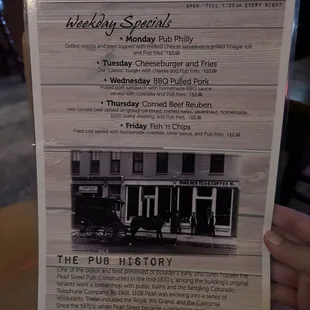 OPEN TILL 1:30am EVERY NIGHT
Weekday Specials
• Monday Pub Philly
Grilled onions and beef topped with melted cheese served on a grilled hoagie roll
and Pub fries.
• Tuesday Cheeseburger and Fries
Our Classic burger with cheese and Pub fries.
• Wednesday BBQ Pulled Pork
Pulled pork sandwich with homemade BBQ sauce
served with coleslaw and Pub fries.
• Thursday Corned Beef Reuben
Hot corned beef served on grilled rye bread, melted swiss, sauerkraut, homemade
1000 island dressing, and Pub fries.
• Friday Fish 'n Chips
Fried cod served with homemade coleslaw, tartar sauce, and Pub fries.
THE PUB HISTORY
One of the oldest and best preserved of Boulder's early structures houses the
Pearl Street Pub. Constructed in the mid-1870's, among the building's original
tenants were a barbershop with public baths and the fledgling Colorado
Telephone Company. By 1905, 1108 Pearl was evolving into a series of
restaurants. These included the Royal, the Grand, and the California.
Since the 1970's, when Pearl Street became a